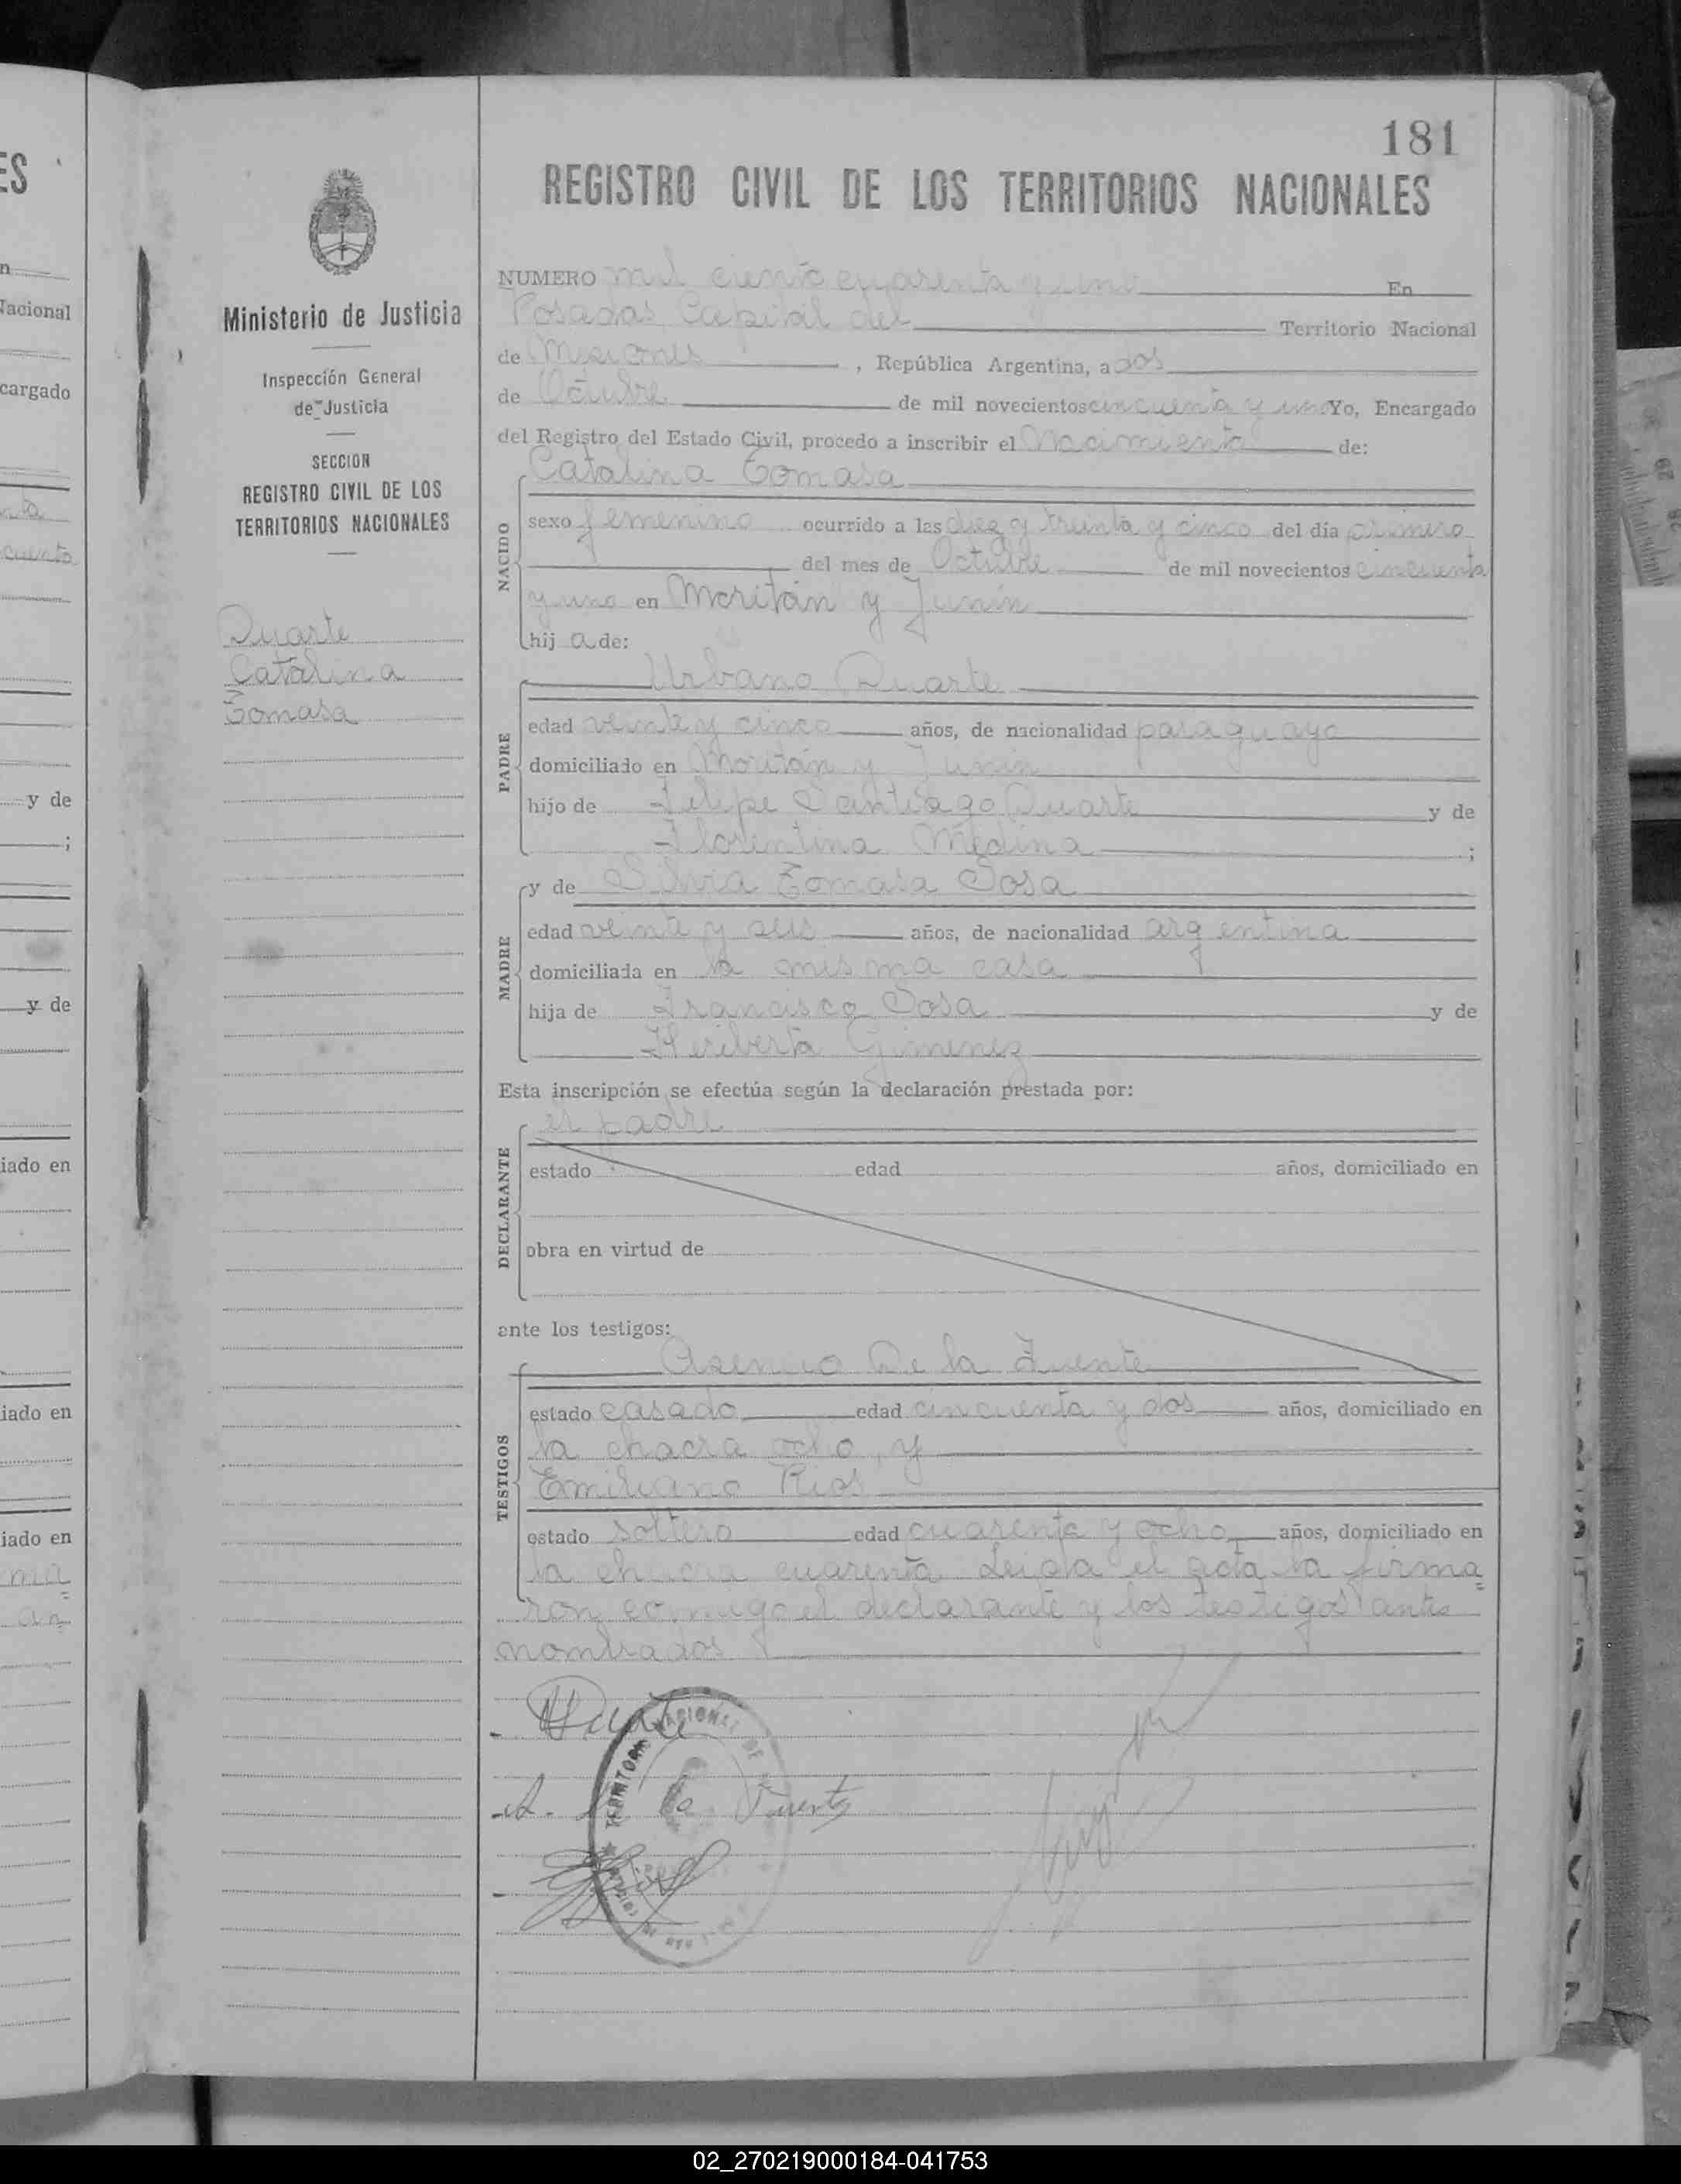 181
REGISTRO CIVIL DE LOS TERRITORIOS NACIONALES
Ministerio de Justicia
Inspección General
de Justicia
SECCION
REGISTRO CIVIL DE LOS
TERRITORIOS NACIONALES
Duarte
Catalina
Tomasa
NUMERO mil ciento cuarenta y uno En
Posadas Capital del Territorio Nacional
de Misiones , República Argentina, a dos
de Octubre de mil novecientos cincuenta y uno Yo, Encargado
del Registro del Estado Civil, procedo a inscribir el Nacimiento de:
Catalina Tomasa
NACIDO
sexo femenino ocurrido a las diez y treinta y cinco del día primero
del mes de Octubre de mil novecientos cincuenta
y uno en Moritán y Junín
hij a de:
Urbano Duarte
PADRE
edad veinte y cinco años, de nacionalidad paraguayo
domiciliado en Moritán y Junín
hijo de Felipe Santiago Duarte y de
Florentina Medina ;
y de Silvia Tomasa Sosa
MADRE
edad veinte y seis años, de nacionalidad argentina
domiciliada en la misma casa
hija de Francisco Sosa y de
Heriberta Gimenez
Esta inscripción se efectúa según la declaración prestada por:
el padre
DECLARANTE
estado edad años, domiciliado en
obra en virtud de
ante los testigos:
Asencio De la Fuente
TESTIGOS
estado casado edad cincuenta y dos años, domiciliado en
la chacra ocho y
Emiliano Rios
estado soltero edad cuarenta y ocho años, domiciliado en
la chacra cuarenta. Leida el acta la firma=
ron conmigo el declarante y los testigos antes
nombrados
UDuarte
TERRITORIO NACIONAL DE
A. de la Fuente
ES
n
Nacional
cargado
y de
;
y de
iado en
iado en
iado en
02_270219000184-041753